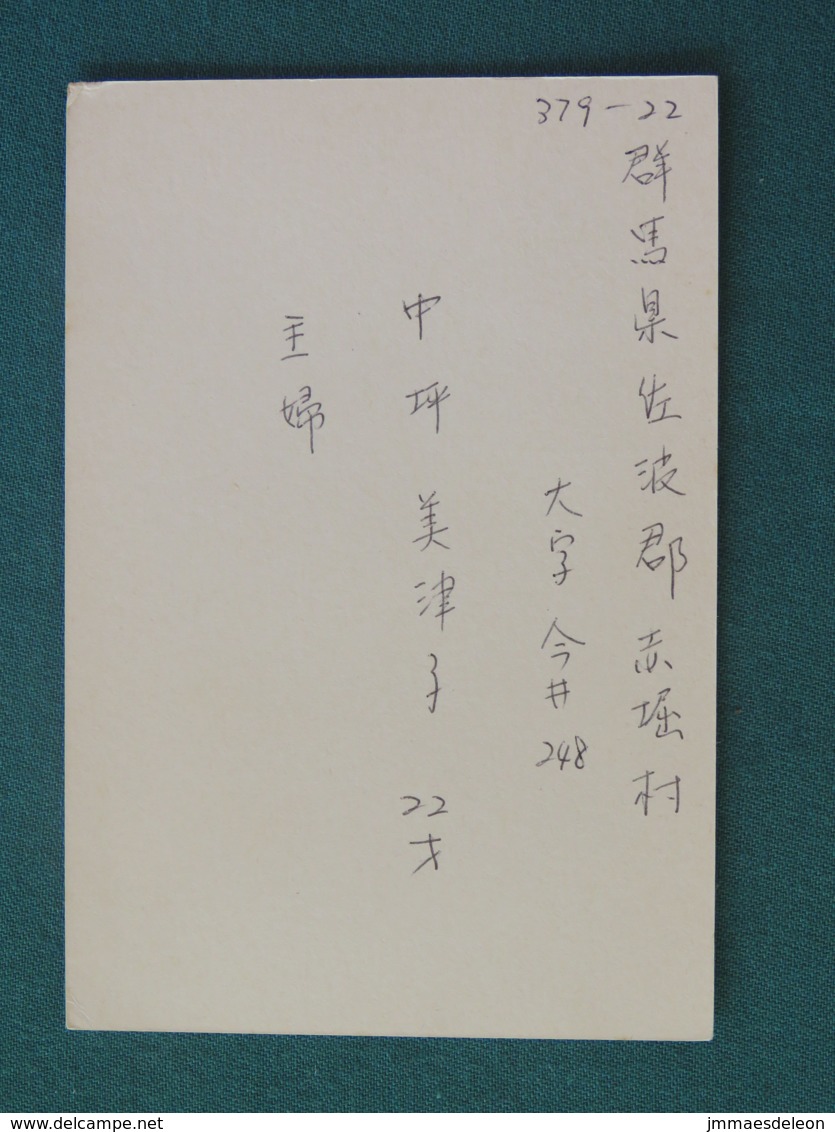 379-22
群馬県佐波郡赤堀村
大字今井248
中坪美津子 22才
主婦
www.delcampe.net
jmmaesdeleon